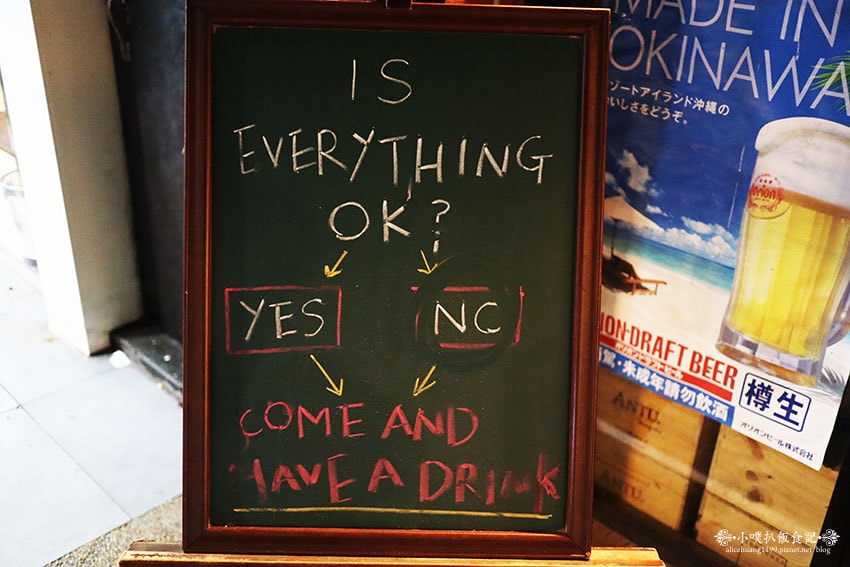 IS
EVERYTHING
OK?
YES
NO
COME AND
HAVE A DRINK
MADE IN
OKINAWA
ゾートアイランド沖縄の
いしさをどうぞ。
Orion
ION-DRAFT BEER
オリオンドラフトビール
駕・未成年請勿飲酒
樽生
オリオンビール株式会社
ANTU.
ANTU.
小噗扒飯食記
alicehuang1199.pixnet.net/blog